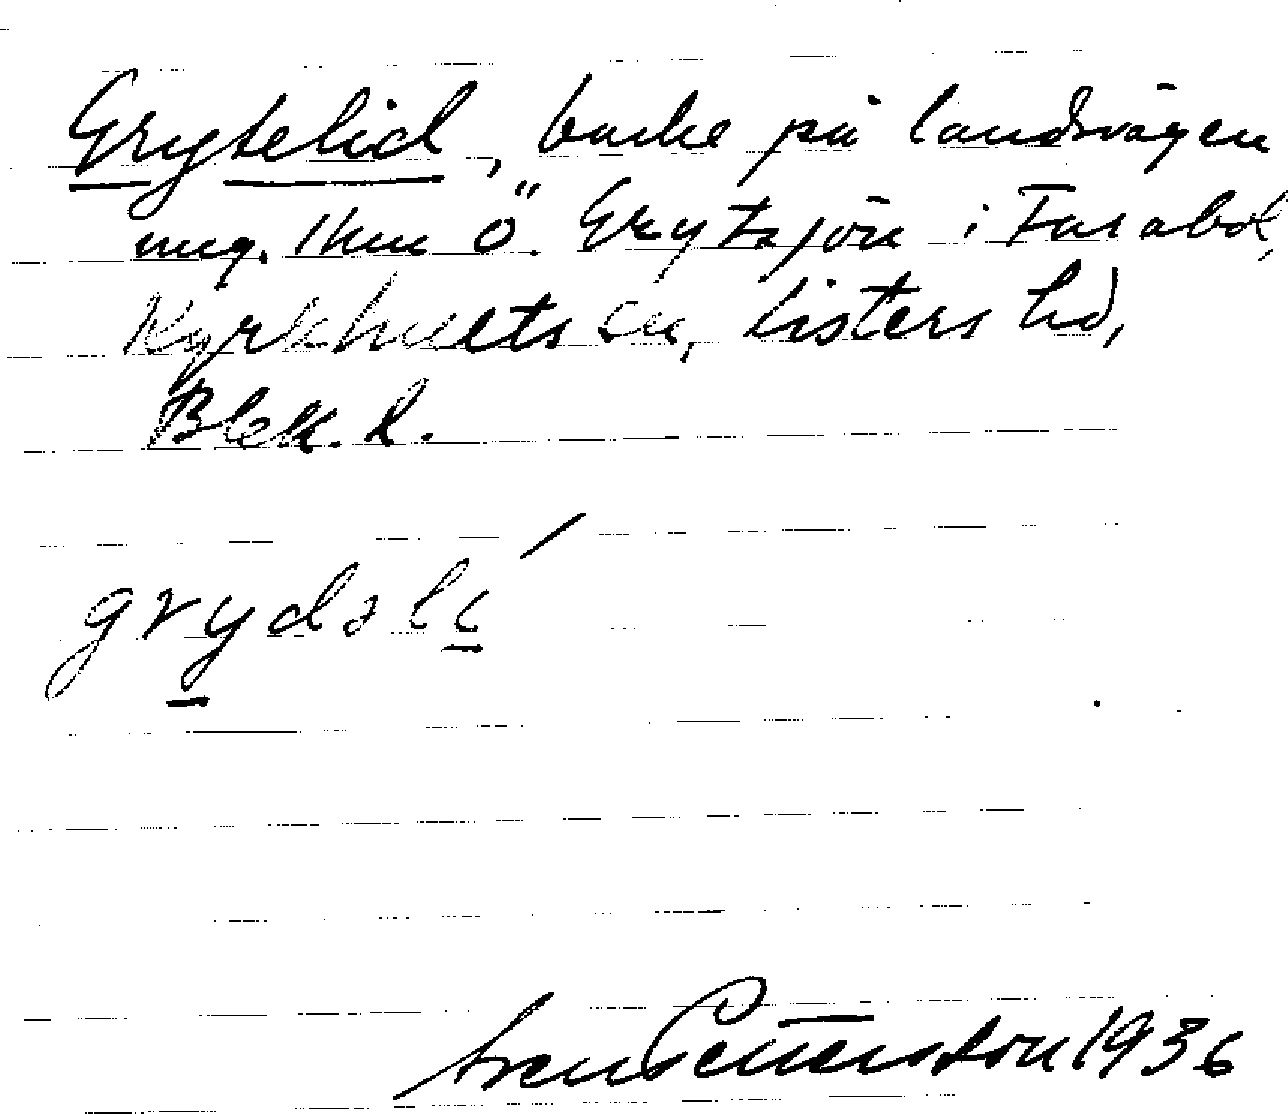 Grytelid, backe på landsvägen
ung. 1 km ö. Grytsjön i Farabol,
Kyrkhults sn, Listers hd,
Blek. l.
grydəlí
Sven Pettersson 1936